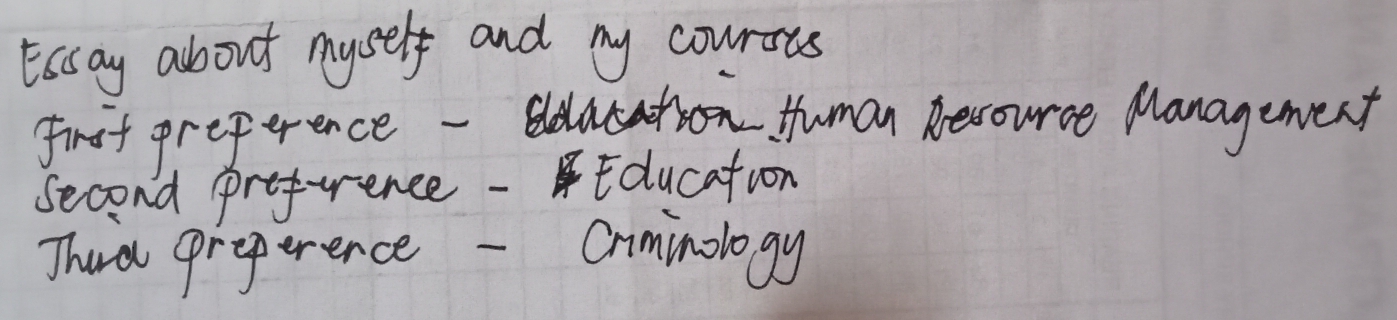 Essay about myself and my courses
First preference - Education Human Resource Management
Second preference - Education
Third preference - Criminology